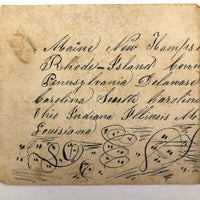 Maine New Hampsh
Rhode-Island Conn
Pennsylvania Delaward
Carolina South Carolin
Ohio Indiana Illinois M
Louisiana